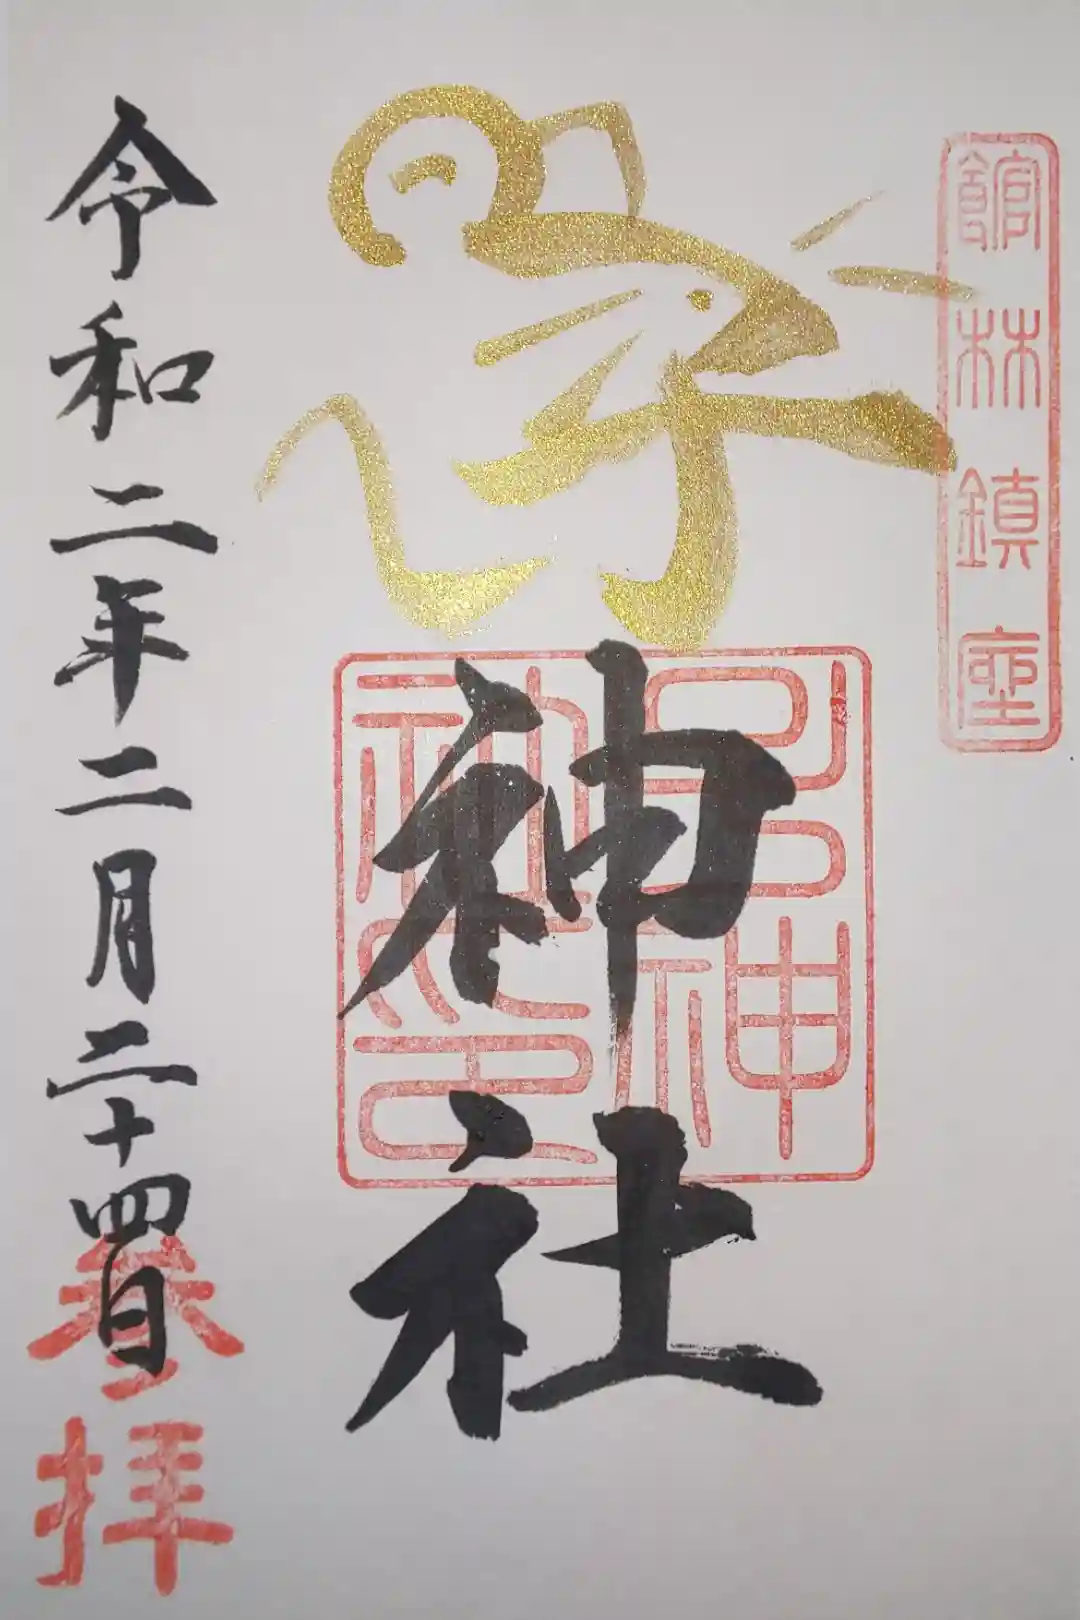 館林鎮座
子神社
神社印
令和二年二月二十四日
奉拝